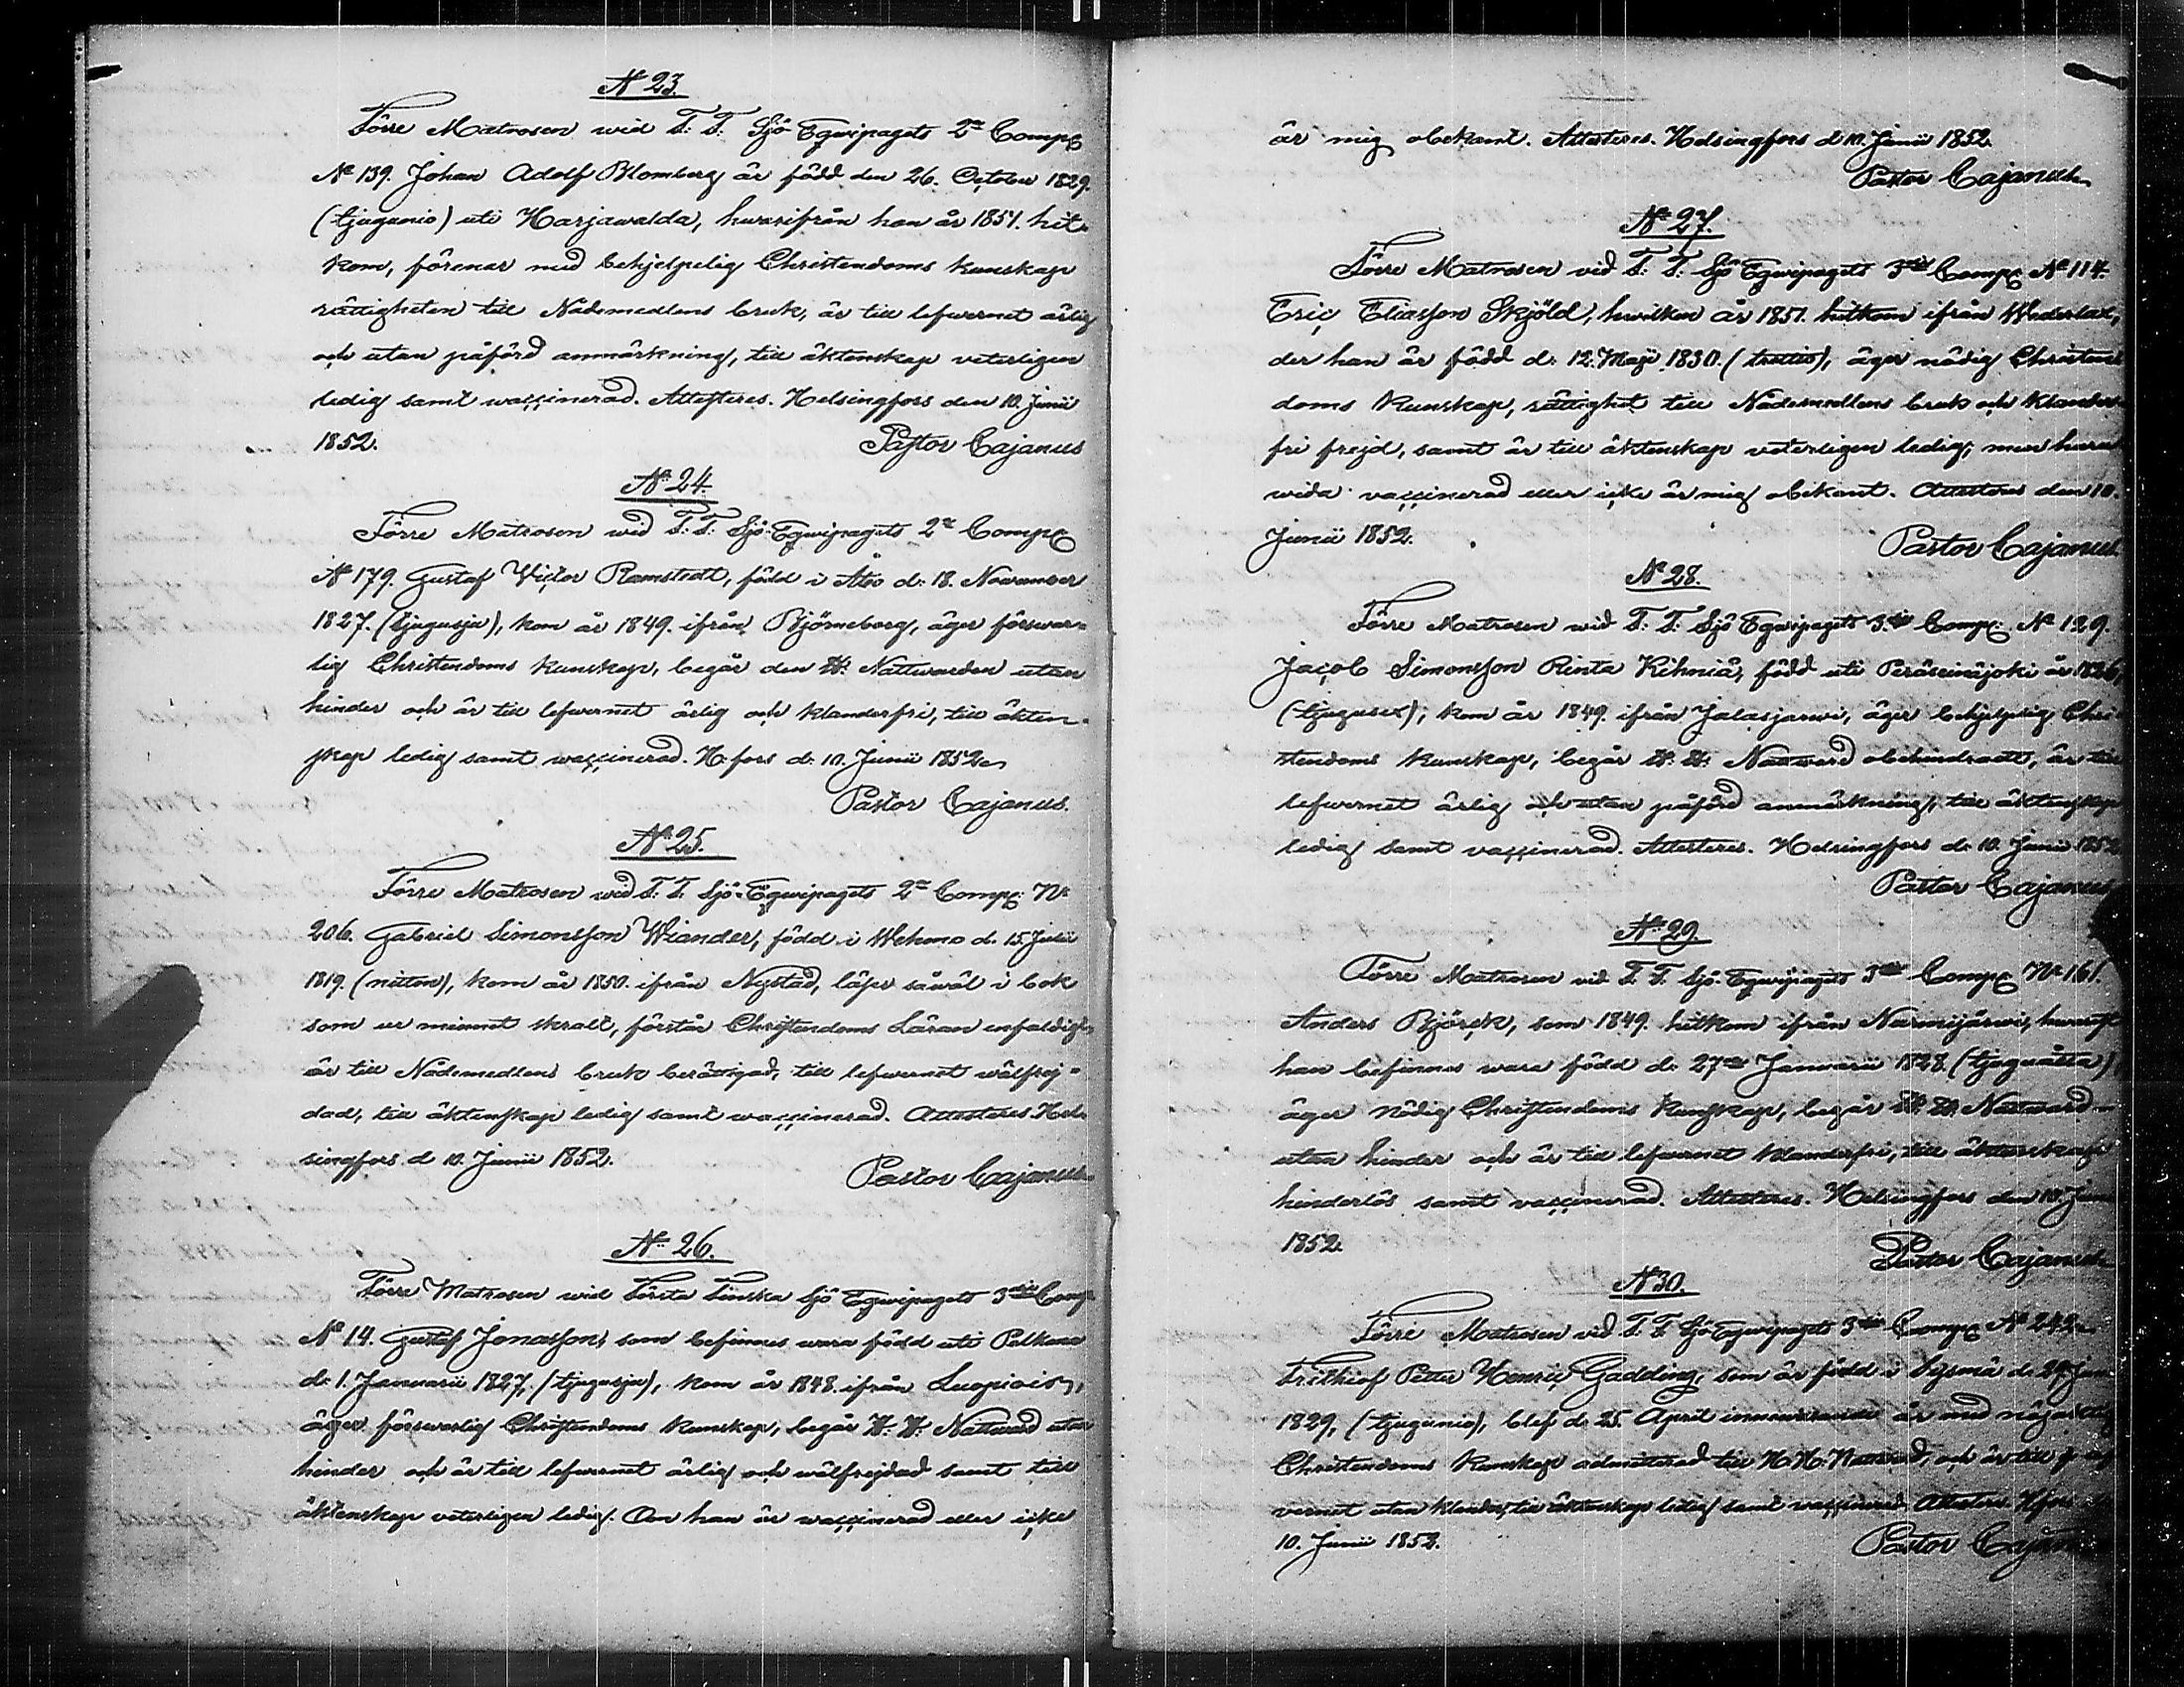 N 23.
Förre Matrosen wid F: F: Sjö Eqwipagets 2ra Comp:
No 139. Johan Adolf Blomberg är född den 26. October 1829.
(tjugunio) uti Harjawalda, hwarifrån han år 1851. hit-
kom, förenar med behjelpelig Christendoms kunskap
rättigheten till Nådemedlens bruk, är till lefwernet ärlig
och utan påförd anmärkning, till äktenskap veterligen
ledig samt waccinerad. Attesteres. Helsingfors den 10. Junii
1852. Pastor Cajanus
No 24.
Förre Matrosen wid F: F: Sjö-Eqwipagets 2ra Comp:
No 179. Gustaf Wictor Ramstedt, född i Åbo d: 18. Nowember
1827. (tjugusju), kom år 1849. ifrån Björneborg, äger förswar-
lig Christendoms kunskap, begår den H: Nattwarden utan
hinder och är till lefwernet ärlig och klanderfri, till äkten-
skap ledig samt waccinerad. H:fors d: 10. Junii 1852.
Pastor Cajanus.
No 25.
Förre Matrosen wid F: F. Sjö-Eqwipagets 2ra Comp: No
206. Gabriel Simonsson Wiander, född i Wehmo d. 15. Julii
1819. (nitton), kom år 1850. ifrån Nystad, läser såwäl i bok
som ur minnet skralt, förstår Christendoms Läran enfaldigt,
är till Nådemedlens bruk berättigad, till lefwernet wälfrej-
dad, till äktenskap ledig samt waccinerad. Attesteres. Hel-
singfors d 10. Junii 1852.
Pastor Cajanus
No 26.
Förre Matrosen wid Första Finska Sjö Eqwipagets 3dje Comp:
No 14. Gustaf Jonasson, som befinnes wara född uti Pelkane
d: 1. Januarii 1827, (tjugusju), kom år 1848. ifrån Luopiois,
äger förswarlig Christendoms kunskap, begår H: H: Nattward utan
hinder och är till lefwernet ärlig och wälfrejdad samt till
äktenskap veterligen ledig. Om han är waccinerad eller icke
är mig obekant. Attesteres. Helsingfors d 10. Junii 1852.
Pastor Cajanus
No 27.
Förre Matrosen vid F: F: Sjö Eqwipagets 3dje Comp: No 114.
Eric Eliasson Skjöld, hwilken år 1851. hitkom ifrån Wederlax,
der han är född d: 12. Maji 1830. (trettio), äger nödig Christen-
doms kunskap, rättighet till Nådemedlens bruk och klander-
fri frejd, samt är till äktenskap veterligen ledig; men huru-
wida vaccinerad eller icke är mig obekant. Attesteres den 10.
Junii 1852.
Pastor Cajanus.
No 28.
Förre Matrosen wid F: F: Sjö Eqwipagets 3dje Comp: No 129.
Jacob Simonsson Rinta Kihniä, född uti Peräseinäjoki år 1826,
(tjugusex), kom år 1849. ifrån Jalasjarwi, äger behjelpelig Chri-
stendoms kunskap, begår H: H: Nattward obehindradt, är till
lefwernet ärlig och utan påförd anmärkning, till äktenskap
ledig samt vaccinerad. Attesteres. Helsingfors d: 10. Junii 1852
Pastor Cajanus
No 29.
Förre Matrosen vid F. F. Sjö-Eqwipagets 3dje Comp: No 161.
Anders Björck, som 1849. hitkom ifrån Nurmijärwi, hwarest
han befinnes wara född d: 27de Januarii 1828. (tjuguåtta),
äger nödig Christendoms kunskap, begår H: H: Nattward
utan hinder och är till lefwernet klanderfri, till äktenskap
hinderlös samt vaccinerad. Attesteres. Helsingfors den 10. Junii
1852.
Pastor Cajanus
N 30.
Förre Matrosen vid F. F. Sjö-Eqwipagets 3dje Comp: No 242.
Frithiof Petter Henric Gadding, som är född i Sysmä d:
1829, (tjugunio), blef d: 25. April innewarande år med
Christendoms kunskap admitterad till H. H. Nattward, och är till
vernet utan klander, till äktenskap ledig samt waccinerad. Attesteres. Hfors
10. Junii 1852.
Pastor Cajanus